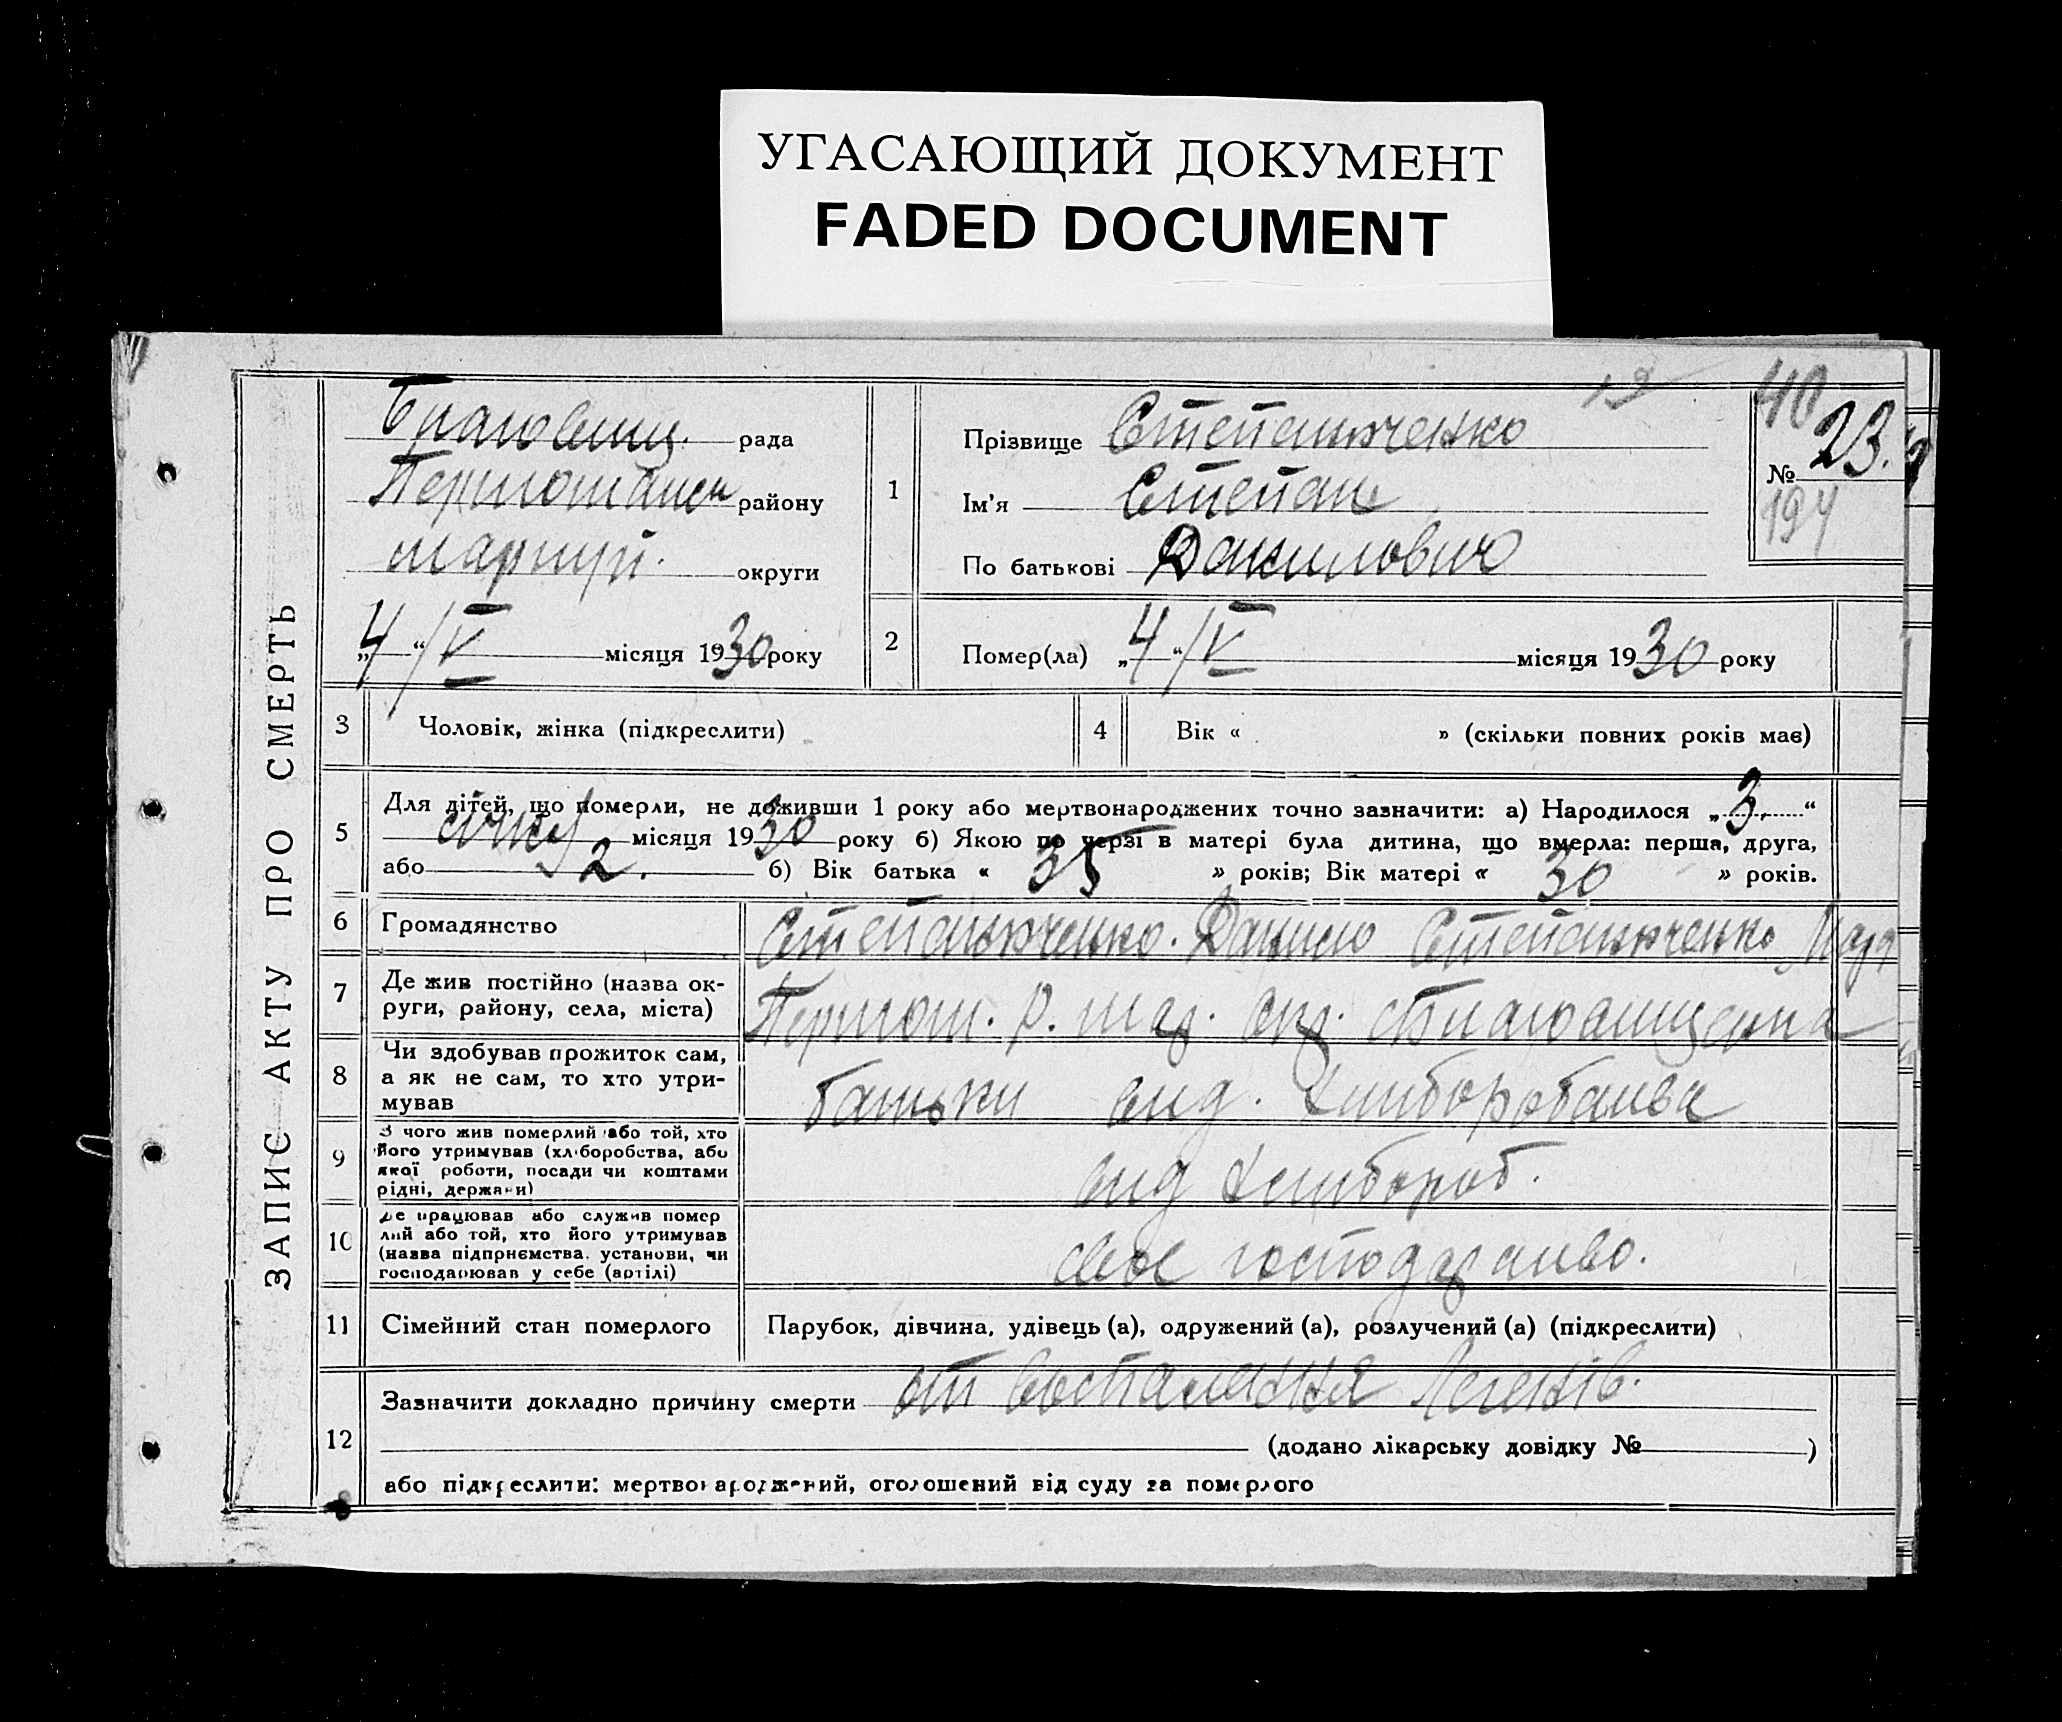 УГАСАЮЩИЙ ДОКУМЕНТ
FADED DOCUMENT
ЗАПИС АКТУ ПРО СМЕРТЬ
рада
району
округи
„4“/V місяця 1930 року
12
40
№ 23.
194
1 Прізвище Степанюченко
Ім'я Степан
По батькові Данилович
2 Помер(ла) „4“/V місяця 1930 року
3 Чоловік, жінка (підкреслити)
4 Вік « » (скільки повних років має)
5 Для дітей, що померли, не доживши 1 року або мертвонароджених точно зазначити: а) Народилося „3“
місяця 1930 року б) Якою по черзі в матері була дитина, що вмерла: перша, друга,
або 2. б) Вік батька « 35 » років; Вік матері « 30 » років.
6 Громадянство Степанюченко. Данило Степанюченко
7 Де жив постійно (назва ок-
руги, району, села, міста)
8 Чи здобував прожиток сам,
а як не сам, то хто утри-
мував
батьки
9 З чого жив померлий або той, хто
його утримував (хліборобства, або
якої роботи, посади чи коштами
рідні, держави)
10 Де працював або служив помер
лий або той, хто його утримував
(назва підприємства, установи, чи
господарював у себе (артілі)
своє господарство.
11 Сімейний стан померлого Парубок, дівчина, удівець (а), одружений (а), розлучений (а) (підкреслити)
12 Зазначити докладно причину смерти от воспаления легенів.
(додано лікарську довідку № )
або підкреслити: мертвонароджений, оголошений від суду за померлого